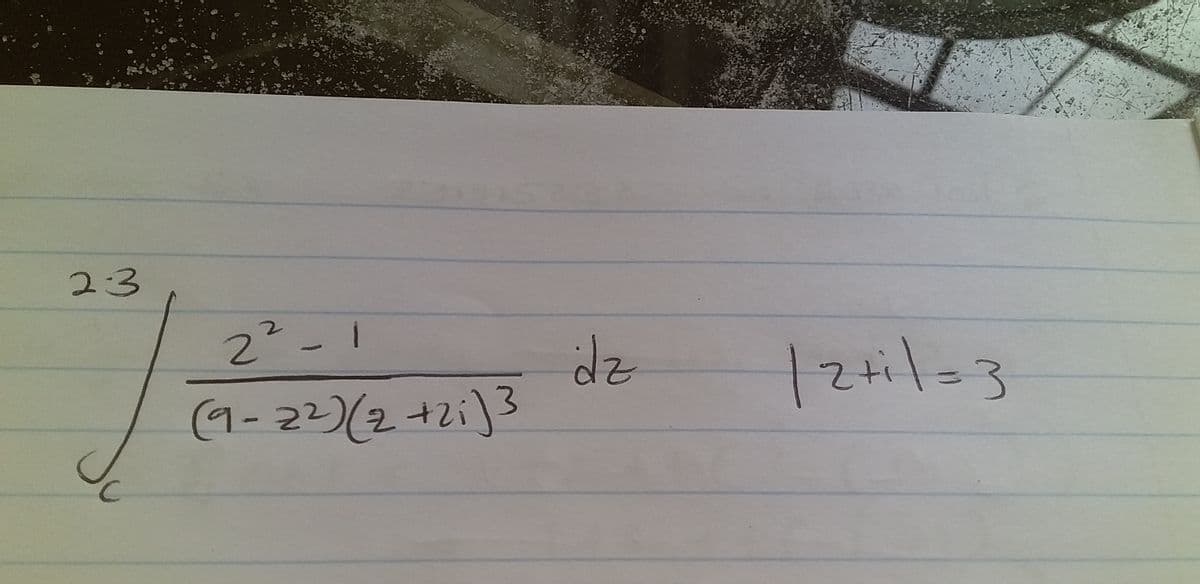 2.3
∫_C (z² - 1) / ((9 - z²)(z + 2i)³) dz    |z+i| = 3